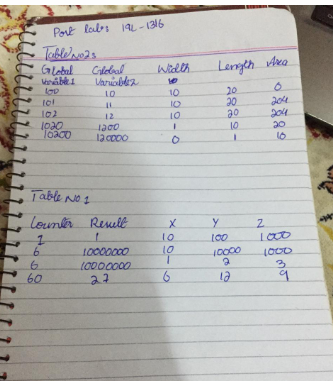 Post Labs 19L-1316
Table No 2:
Global Global Width Length Area
Variable 1 Variable 2
100 10 10 20 0
101 11 10 20 204
102 12 10 20 204
1020 1200 1 10 20
10200 120000 0 1 10
Table No 1
Counter Result X Y Z
1 1 10 100 1000
6 10000000 10 10000 1000
6 10000000 1 2 3
60 27 6 12 9